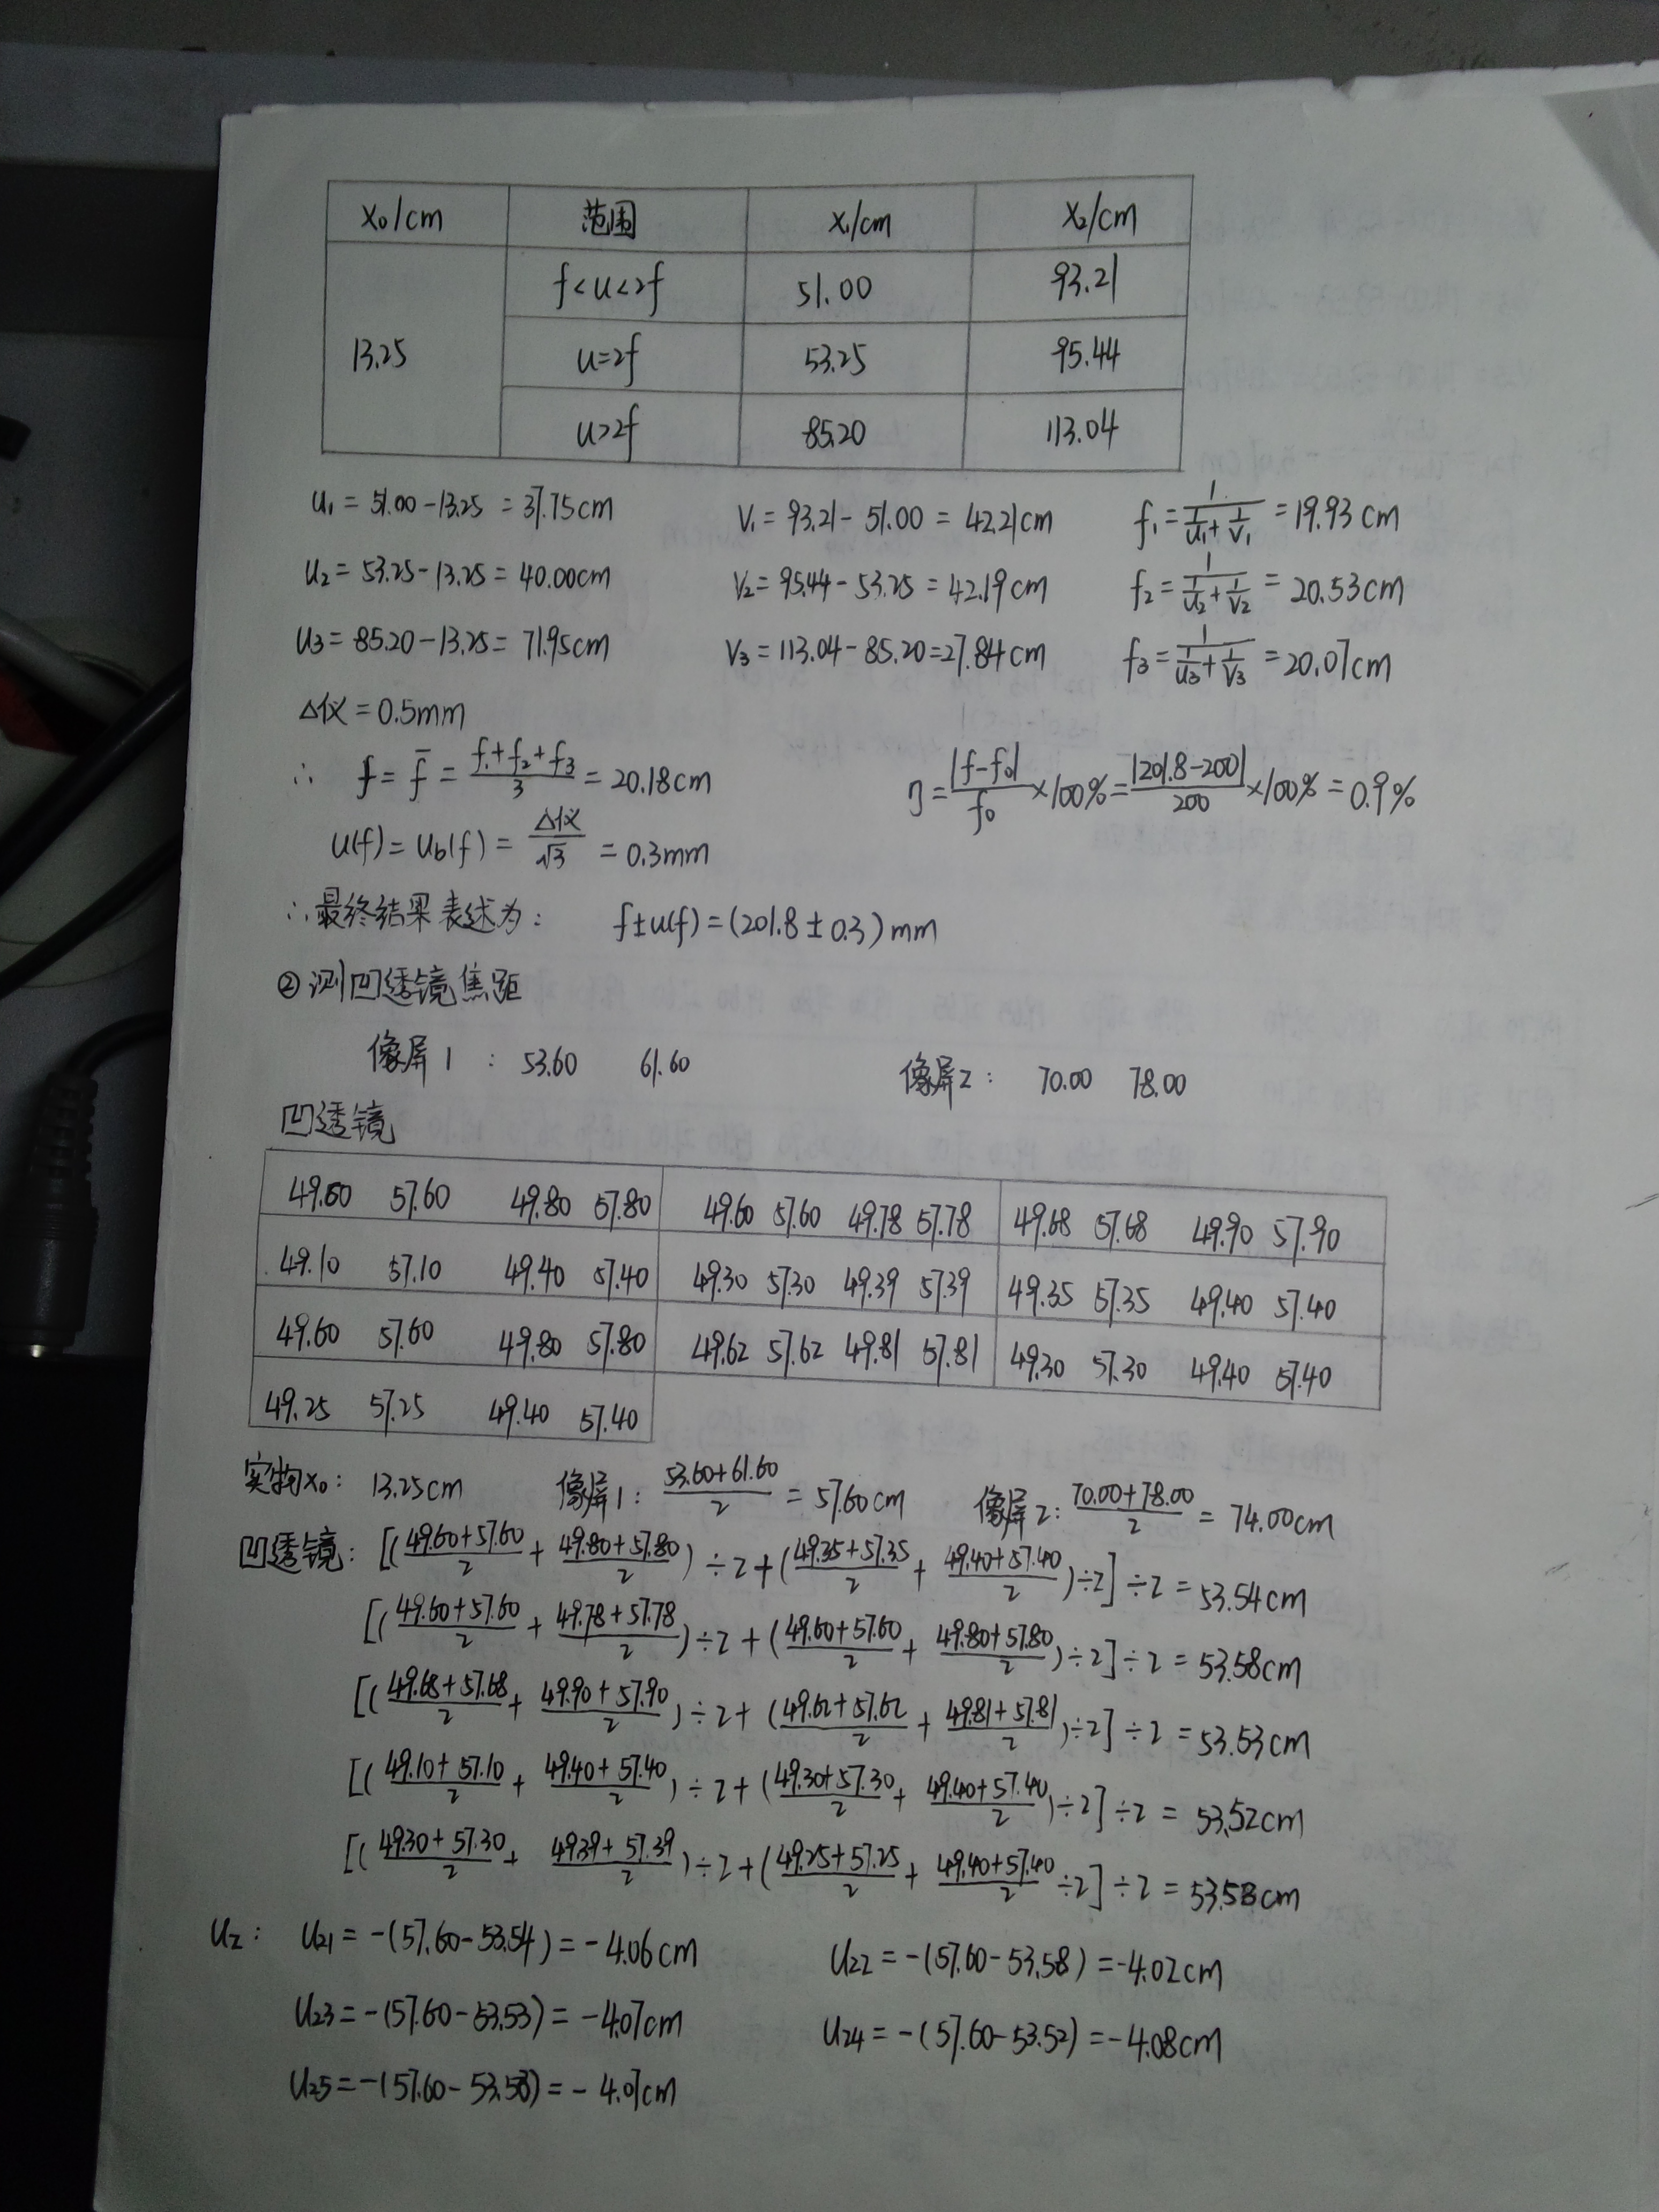 x₀/cm 范围 x₁/cm x₂/cm
13.25 f<u<2f 51.00 93.21
u=2f 53.25 95.44
u>2f 85.20 113.04
u₁ = 51.00-13.25 = 37.75cm V₁ = 93.21- 51.00 = 42.21cm f₁ = 1/(1/u₁+1/V₁) = 19.93 cm
u₂ = 53.25-13.25= 40.00cm V₂ = 95.44- 53.25 = 42.19cm f₂ = 1/(1/u₂+1/V₂) = 20.53cm
u₃ = 85.20-13.25= 71.95cm V₃ = 113.04- 85.20=27.84cm f₃ = 1/(1/u₃+1/V₃) = 20.07cm
Δ仪 = 0.5mm
∴ f = f̄ = (f₁+f₂+f₃)/3 = 20.18cm η = |f-f₀|/f₀ ×100% = |201.8-200|/200 ×100% = 0.9%
u(f) = u_b(f) = Δ仪/√3 = 0.3mm
∴最终结果表述为: f±u(f) = (201.8 ± 0.3) mm
②测凹透镜焦距
像屏1 : 53.60 61.60 像屏2: 70.00 78.00
凹透镜
49.60 57.60 49.80 57.80 49.60 57.60 49.78 57.78 49.68 57.68 49.90 57.90
49.10 57.10 49.40 57.40 49.30 57.30 49.39 57.39 49.35 57.35 49.40 57.40
49.60 57.60 49.80 57.80 49.62 57.62 49.81 57.81 49.30 57.30 49.40 57.40
49.25 57.25 49.40 57.40
实物x₀: 13.25cm 像屏1: (53.60+61.60)/2 = 57.60cm 像屏2: (70.00+78.00)/2 = 74.00cm
凹透镜: [((49.60+57.60)/2 + (49.80+57.80)/2) ÷2 + ((49.35+57.35)/2 + (49.40+57.40)/2) ÷2] ÷2 = 53.54cm
[((49.60+57.60)/2 + (49.78+57.78)/2) ÷2 + ((49.60+57.60)/2 + (49.80+57.80)/2) ÷2] ÷2 = 53.58cm
[((49.68+57.68)/2 + (49.90+57.90)/2) ÷2 + ((49.62+57.62)/2 + (49.81+57.81)/2) ÷2] ÷2 = 53.53cm
[((49.10+57.10)/2 + (49.40+57.40)/2) ÷2 + ((49.30+57.30)/2 + (49.40+57.40)/2) ÷2] ÷2 = 53.52cm
[((49.30+57.30)/2 + (49.39+57.39)/2) ÷2 + ((49.25+57.25)/2 + (49.40+57.40)/2 ÷2] ÷2 = 53.53cm
u₂: u₂₁ = -(57.60-53.54) = -4.06cm u₂₂ = -(57.60-53.58) = -4.02cm
u₂₃ = -(57.60-53.53) = -4.07cm u₂₄ = -(57.60-53.52) = -4.08cm
u₂₅ = -(57.60-53.53) = -4.07cm